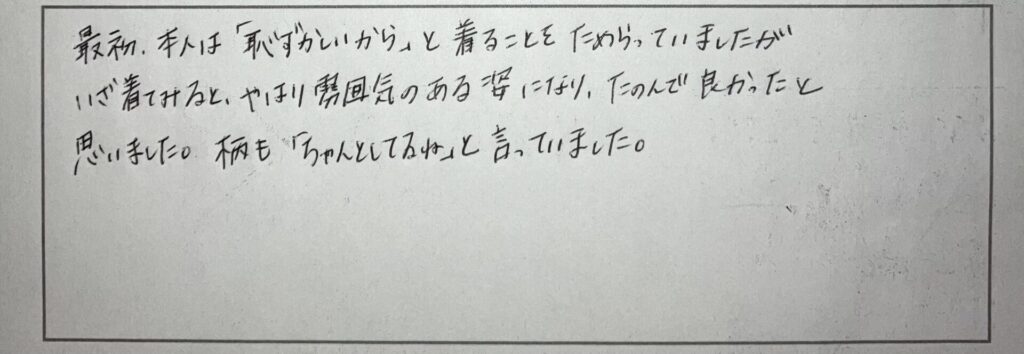 最初、本人は「恥ずかしいから」と着ることをためらっていましたが
いざ着てみると、やはり雰囲気のある姿になり、たのんで良かったと
思いました。柄も「ちゃんとしてるね」と言っていました。